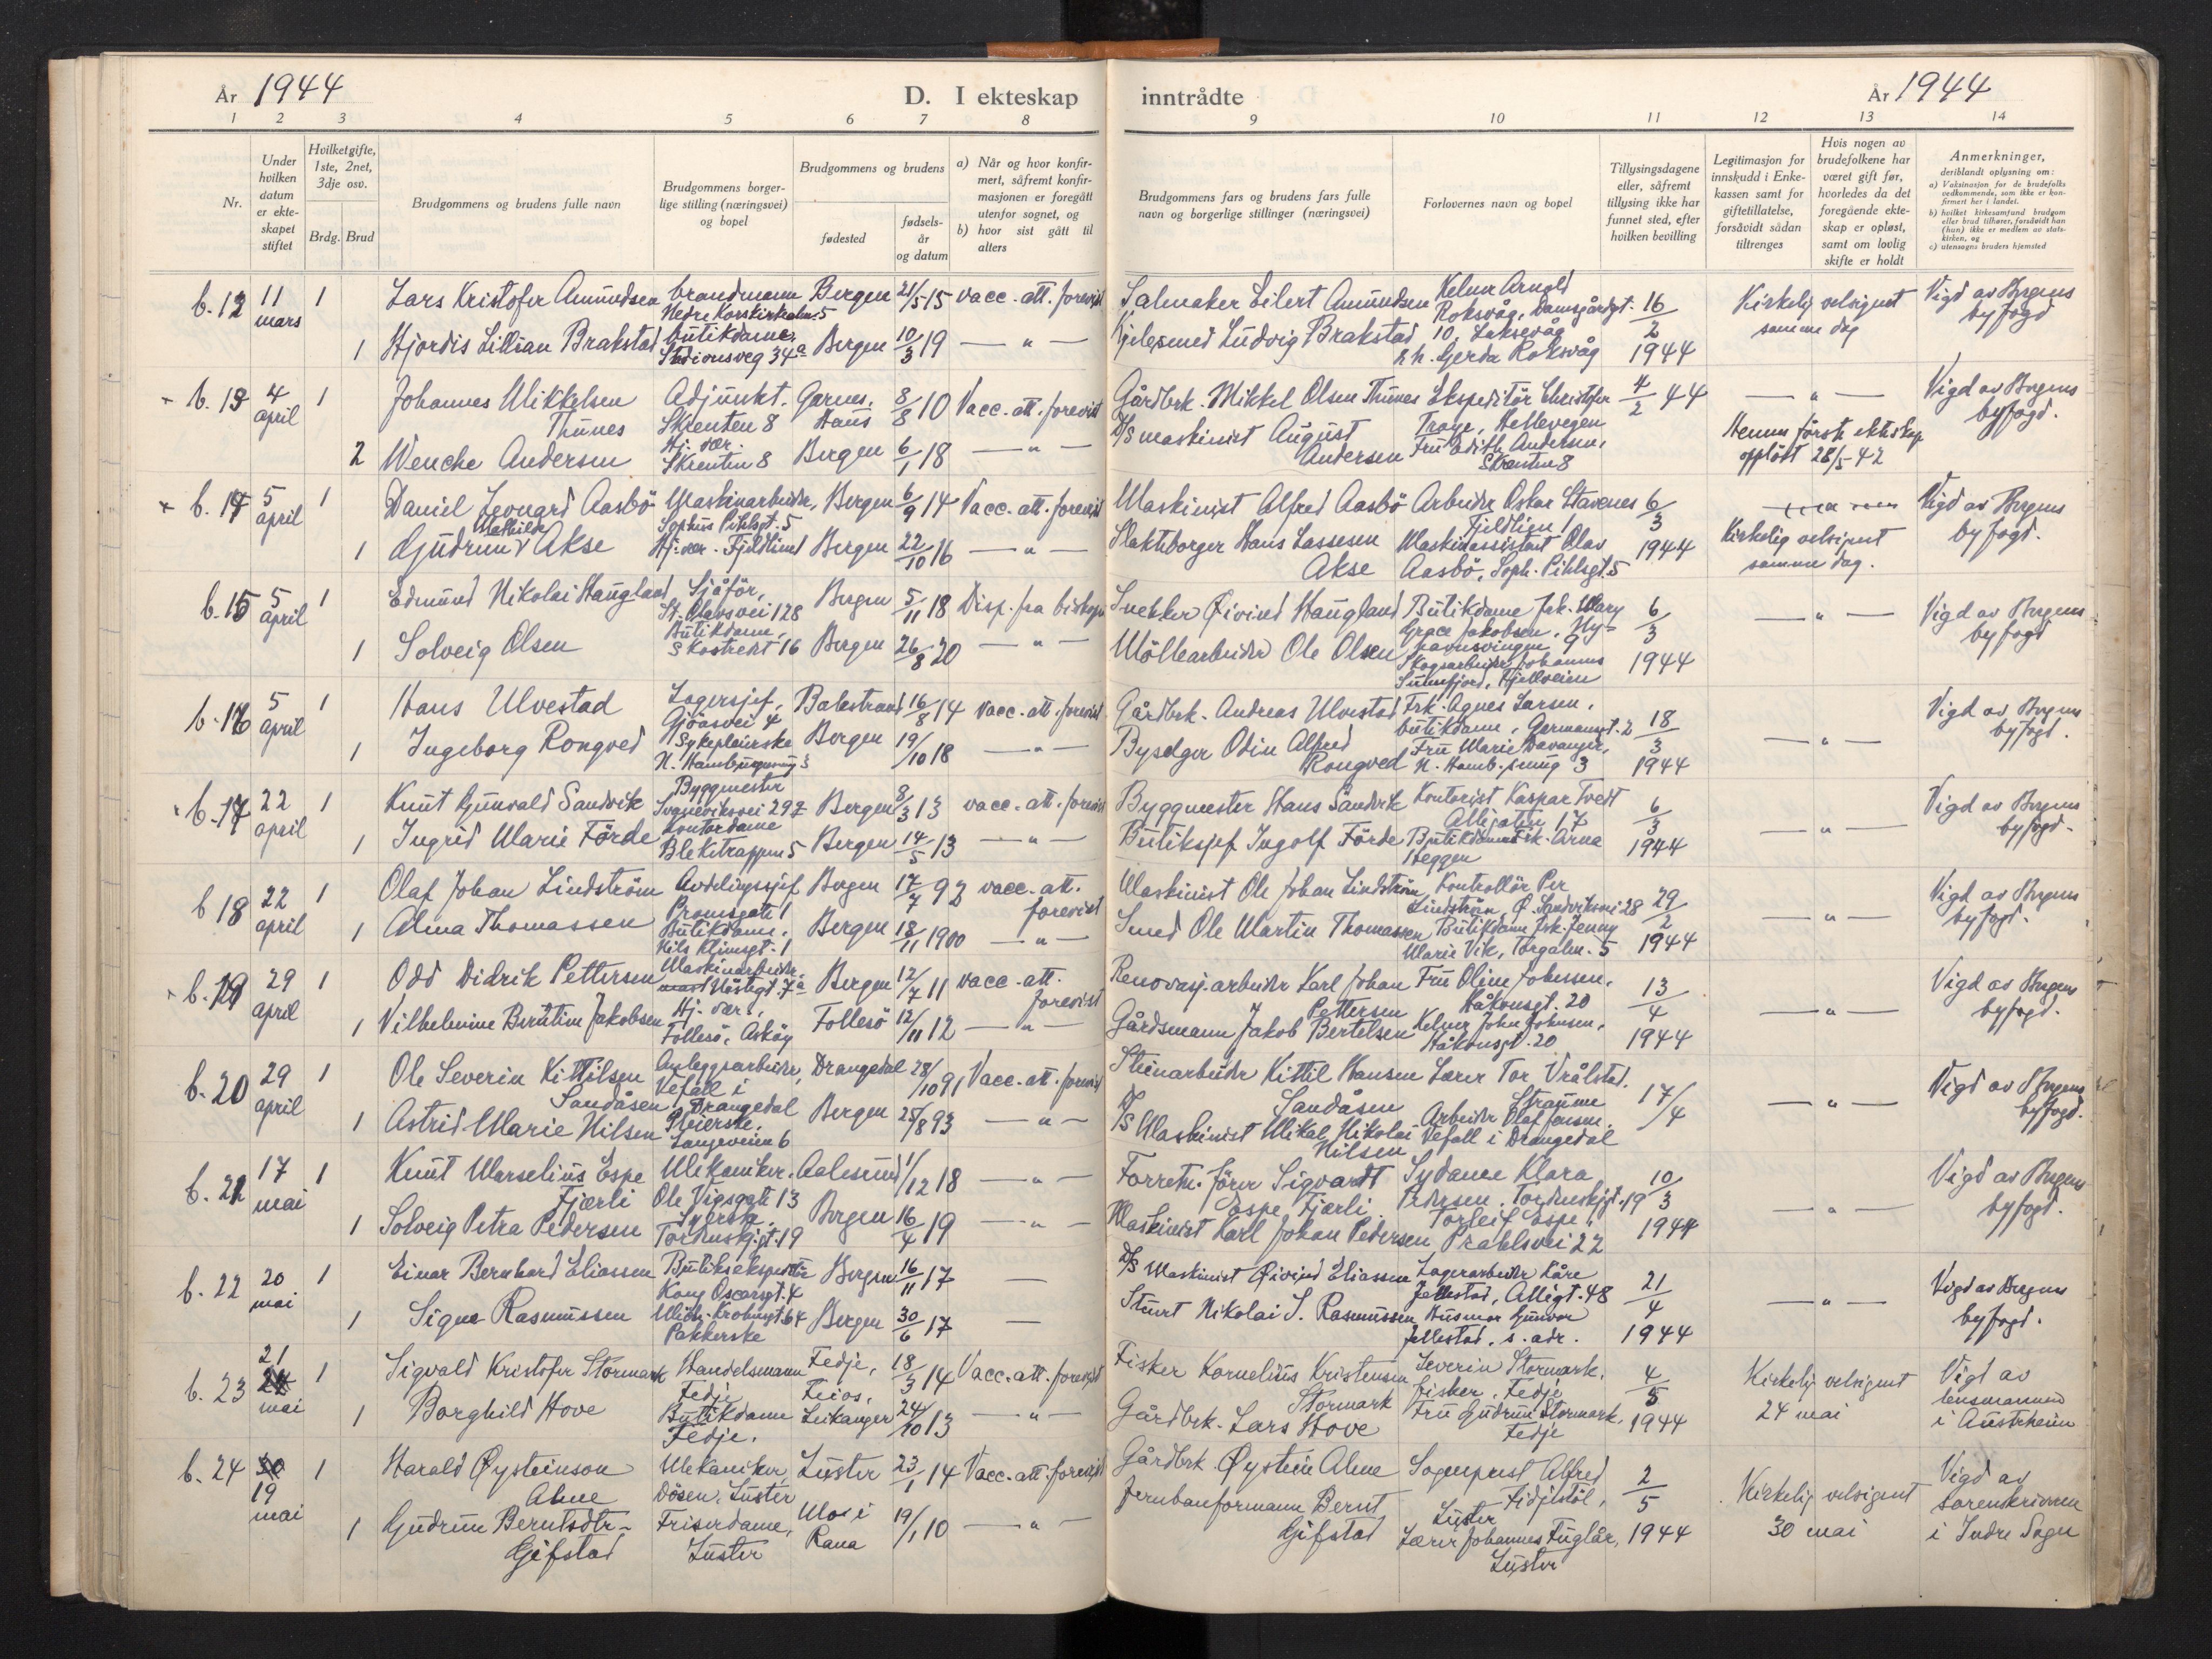 År 1944
D. I ekteskap inntrådte
År 1944
1 2 3 4 5 6 7 8 9 10 11 12 13 14
Nr.
Under hvilken datum er ekteskapet stiftet
Hvilket gifte, 1ste, 2net, 3dje osv.
Brdg. Brud
Brudgommens og brudens fulle navn
Brudgommens borgerlige stilling (næringsvei) og bopel
Brudgommens og brudens
fødested
fødselsår og datum
a) Når og hvor konfirmert, såfremt konfirmasjonen er foregått utenfor sognet, og
b) hvor sist gått til alters
Brudgommens fars og brudens fars fulle navn og borgerlige stillinger (næringsvei)
Forlovernes navn og bopel
Tillysingsdagene eller, såfremt tillysing ikke har funnet sted, efter hvilken bevilling
Legitimasjon for innskudd i Enkekassen samt for giftetillatelse, forsåvidt sådan tiltrenges
Hvis nogen av brudefolkene har været gift før, hvorledes da det foregående ekteskap er opløst, samt om lovlig skifte er holdt
Anmerkninger, deriblandt oplysning om:
a) Vaksinasjon for de brudefolks vedkommende, som ikke er konfirmert her i landet.
b) hvilket kirkesamfund brudgom eller brud tilhører, forsåvidt han (hun) ikke er medlem av statskirken, og
c) utensogns bruders hjemsted
b. 12 11 mars 1 Lars Kristofer Amundsen brandmann Nedre Korskirkealm. 5 Bergen 21/5 15 vacc. att. forevist Salmaker Eilert Amundsen Kelner Arnold Roksvåg, Damsgårdgt. 10, Laksevåg 16/2 1944 Kirkelig velsignet samme dag Vigd av Bergens byfogd
1 Hjørdis Lillian Brakstad butikdame, Stadionsveg 34a Bergen 10/3 19 — " — Ludvig Brakstad Gerda Roksvåg
b. 13 4 april 1 Johannes Mikkelsen Thunes Adjunkt. Skrenten 8 Garnes, Haus 8/8 10 Vacc. att. forevist Gårdbrk. Mikkel Olsen Thunes Ekspeditör Christofer Troye, Hellevegen 4/2 44 — " — Vigd av Bergens byfogd.
2 Wenche Andersen Hj. vær. Skrenten 8 Bergen 6/1 18 — " — D/S maskinist August Andersen Fru Edith Andersen, Skrenten 8 Hennes første ekteskap oppløst 28/5 42
b. 14 5 april 1 Daniel Leonard Aasbö Maskinarbeider, Sophus Pihlsgt. 5 Bergen 6/9 14 Vacc. att. forevist Maskinist Alfred Aasbö Arbeider Oskar Stavenes Fjeldlien 1 6/3 1944 Vigd av Bergens byfogd.
1 Gudrun Mathilde Akse Hj. vær. Fjeldlien 1 Bergen 22/10 16 — " — Slakteborger Hans Lassesen Akse Maskinassistent Olav Aasbö, Soph. Pihlsgt. 5 Kirkelig velsignet samme dag.
b. 15 5 april 1 Edmund Nikolai Haugland Sjåför, St. Olavsvei 128 Bergen 5/11 18 Disp. fra biskopen Snekker Øivind Haugland Butikdame frk. Mary Grace Jakobsen, Nyhavnsvingen 9 6/3 1944 — " — Vigd av Bergens byfogd
1 Solveig Olsen Butikdame, Skostredet 16 Bergen 26/8 20 — " — Möllearbeider Ole Olsen Skogsarbeider Johannes Sunnfjord, Fjellveien
b. 16 5 april 1 Hans Ulvestad Lagersjef, Gjöasvei 4 Balestrand 16/8 14 vacc. att. forevist Gårdbrk. Andreas Ulvestad Frk. Agnes Larsen, butikdame, Gormsgt. 2 18/3 1944 — " — Vigd av Bergens byfogd.
1 Ingeborg Rongved Sykepleierske Bergen 19/10 18 — " — Byselger Odin Alfred Rongved Fru Marie Davanger, N. Hamb. smug 3
b. 17 22 april 1 Knut Gunvald Sandvik Byggmester Bergen 8/3 13 vacc. att. forevist Byggmester Hans Sandvik Kontorist Kaspar Tvedt 6/3 1944 — " — Vigd av Bergens byfogd.
1 Ingrid Marie Förde kontordame Blekitrappen 5 Bergen 14/5 13 — " — Butiksjef Ingolf Förde Butikdame frk. Arna Heggen
b 18 22 april 1 Olaf Johan Lindström Avdelingssjef Promsgate 1 Bergen 17/7 92 vacc. att. forevist Maskinist Ole Johan Lindström Kontrollör Per Lindström, Ø. Sandviksvei 28 29/2 1944 — " — Vigd av Bergens byfogd.
1 Alma Thomassen Butikdame, Nils Klimsgt. 1 Bergen 18/11 1900 — " — Smed Ole Martin Thomassen Butikdame frk. Jenny Marie Vik, Torgalm. 5
b. 19 29 april 1 Odd Didrik Pettersen Maskinarbeider, Nöstegt. 7a Bergen 12/7 11 vacc. att. forevist Renovasj. arbeider Karl Johan Pettersen Fru Oline Johnsen, Håkonsgt. 20 13/4 1944 — " — Vigd av Bergens byfogd.
1 Vilhelmine Berntine Jakobsen Hj. vær., Follesö, Asköy Follesö 12/11 12 — " — Gårdsmann Jakob Bertelsen Kelner John Johnsen, Håkonsgt. 20
b. 20 29 april 1 Ole Severin Kittilsen Sandåsen Anleggsarbeider, Vefall i Drangedal Drangedal 28/10 91 Vacc. att. forevist Steinarbeider Kittil Hansen Sandåsen Lærer Tor Vrålstad, Straume 17/4 — " — Vigd av Bergens byfogd.
1 Astrid Marie Nilsen Pleierske. Langeveien 6 Bergen 25/8 93 — " — D/S Maskinist Mikal Nikolai Nilsen Arbeider Olaf Jensen. Vefall i Drangedal
b. 21 17 mai 1 Knut Marselius Espe Fjærli Mekaniker. Ole Vigsgate 13 Aalesund 1/12 18 — " — Forretn. förer Sigvardt Espe Fjærli Sydame Klara Pedersen. Tordenskjgt. 19 10/3 1944 — " — Vigd av Bergens byfogd.
1 Solveig Petra Pedersen Syerske. Tordenskj.gt. 19 Bergen 16/4 19 — " — Maskinist Karl Johan Pedersen Torleif Espe, Prahlsvei 22
b. 22 20 mai 1 Einar Bernhard Eliassen Butikekspeditör Kong Oscarsgt. 4 Bergen 16/11 17 — D/S Maskinist Øivind Eliassen Lagerarbeider Kåre Jellestad, Allégt. 48 21/4 1944 — " — Vigd av Bergens byfogd.
1 Signe Rasmussen Mich. Krohnsgt. 64 Pakkerske Bergen 30/6 17 — Stuert Nikolai S. Rasmussen Husmor Gunvor Jellestad, s. adr.
b. 23 21 mai 1 Sigvald Kristofer Stormark Handelsmann Fedje Fedje, 18/3 14 Vacc. att. forevist Fisker Kornelius Kristensen Stormark Severin Stormark, fisker, Fedje 4/5 1944 Kirkelig velsignet 24 mai Vigd av lensmannen i Austrheim
1 Borghild Hove Butikdame Fedje. Feios, Leikanger 24/10 13 — " — Gårdbrk. Lars Hove Fru Gudrun Stormark, Fedje
b. 24 30 19 mai 1 Harald Øysteinson Alme Mekaniker, Dösen, Luster Luster 23/1 14 Vacc. att. forevist Gårdbrk. Øystein Alme Sogneprest Alfred Fidjestöl, Luster 2/5 1944 Kirkelig velsignet 30 mai Vigd av sorenskriveren i Indre Sogn
1 Gudrun Berntsdtr. Gifstad Friserdame, Luster Mo i Rana 19/1 10 — " — Jernbaneformann Bernt Gifstad Lærer Johannes Fuglår, Luster